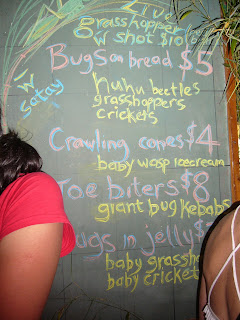 Live
Grasshopper
w shot $10
w
satay
Bugs on bread $5
huhu beetles
grasshoppers
crickets
Crawling cones $4
baby wasp icecream
Toe biters $8
giant bug Kebabs
ugs in jelly $
baby grassho
baby cricket